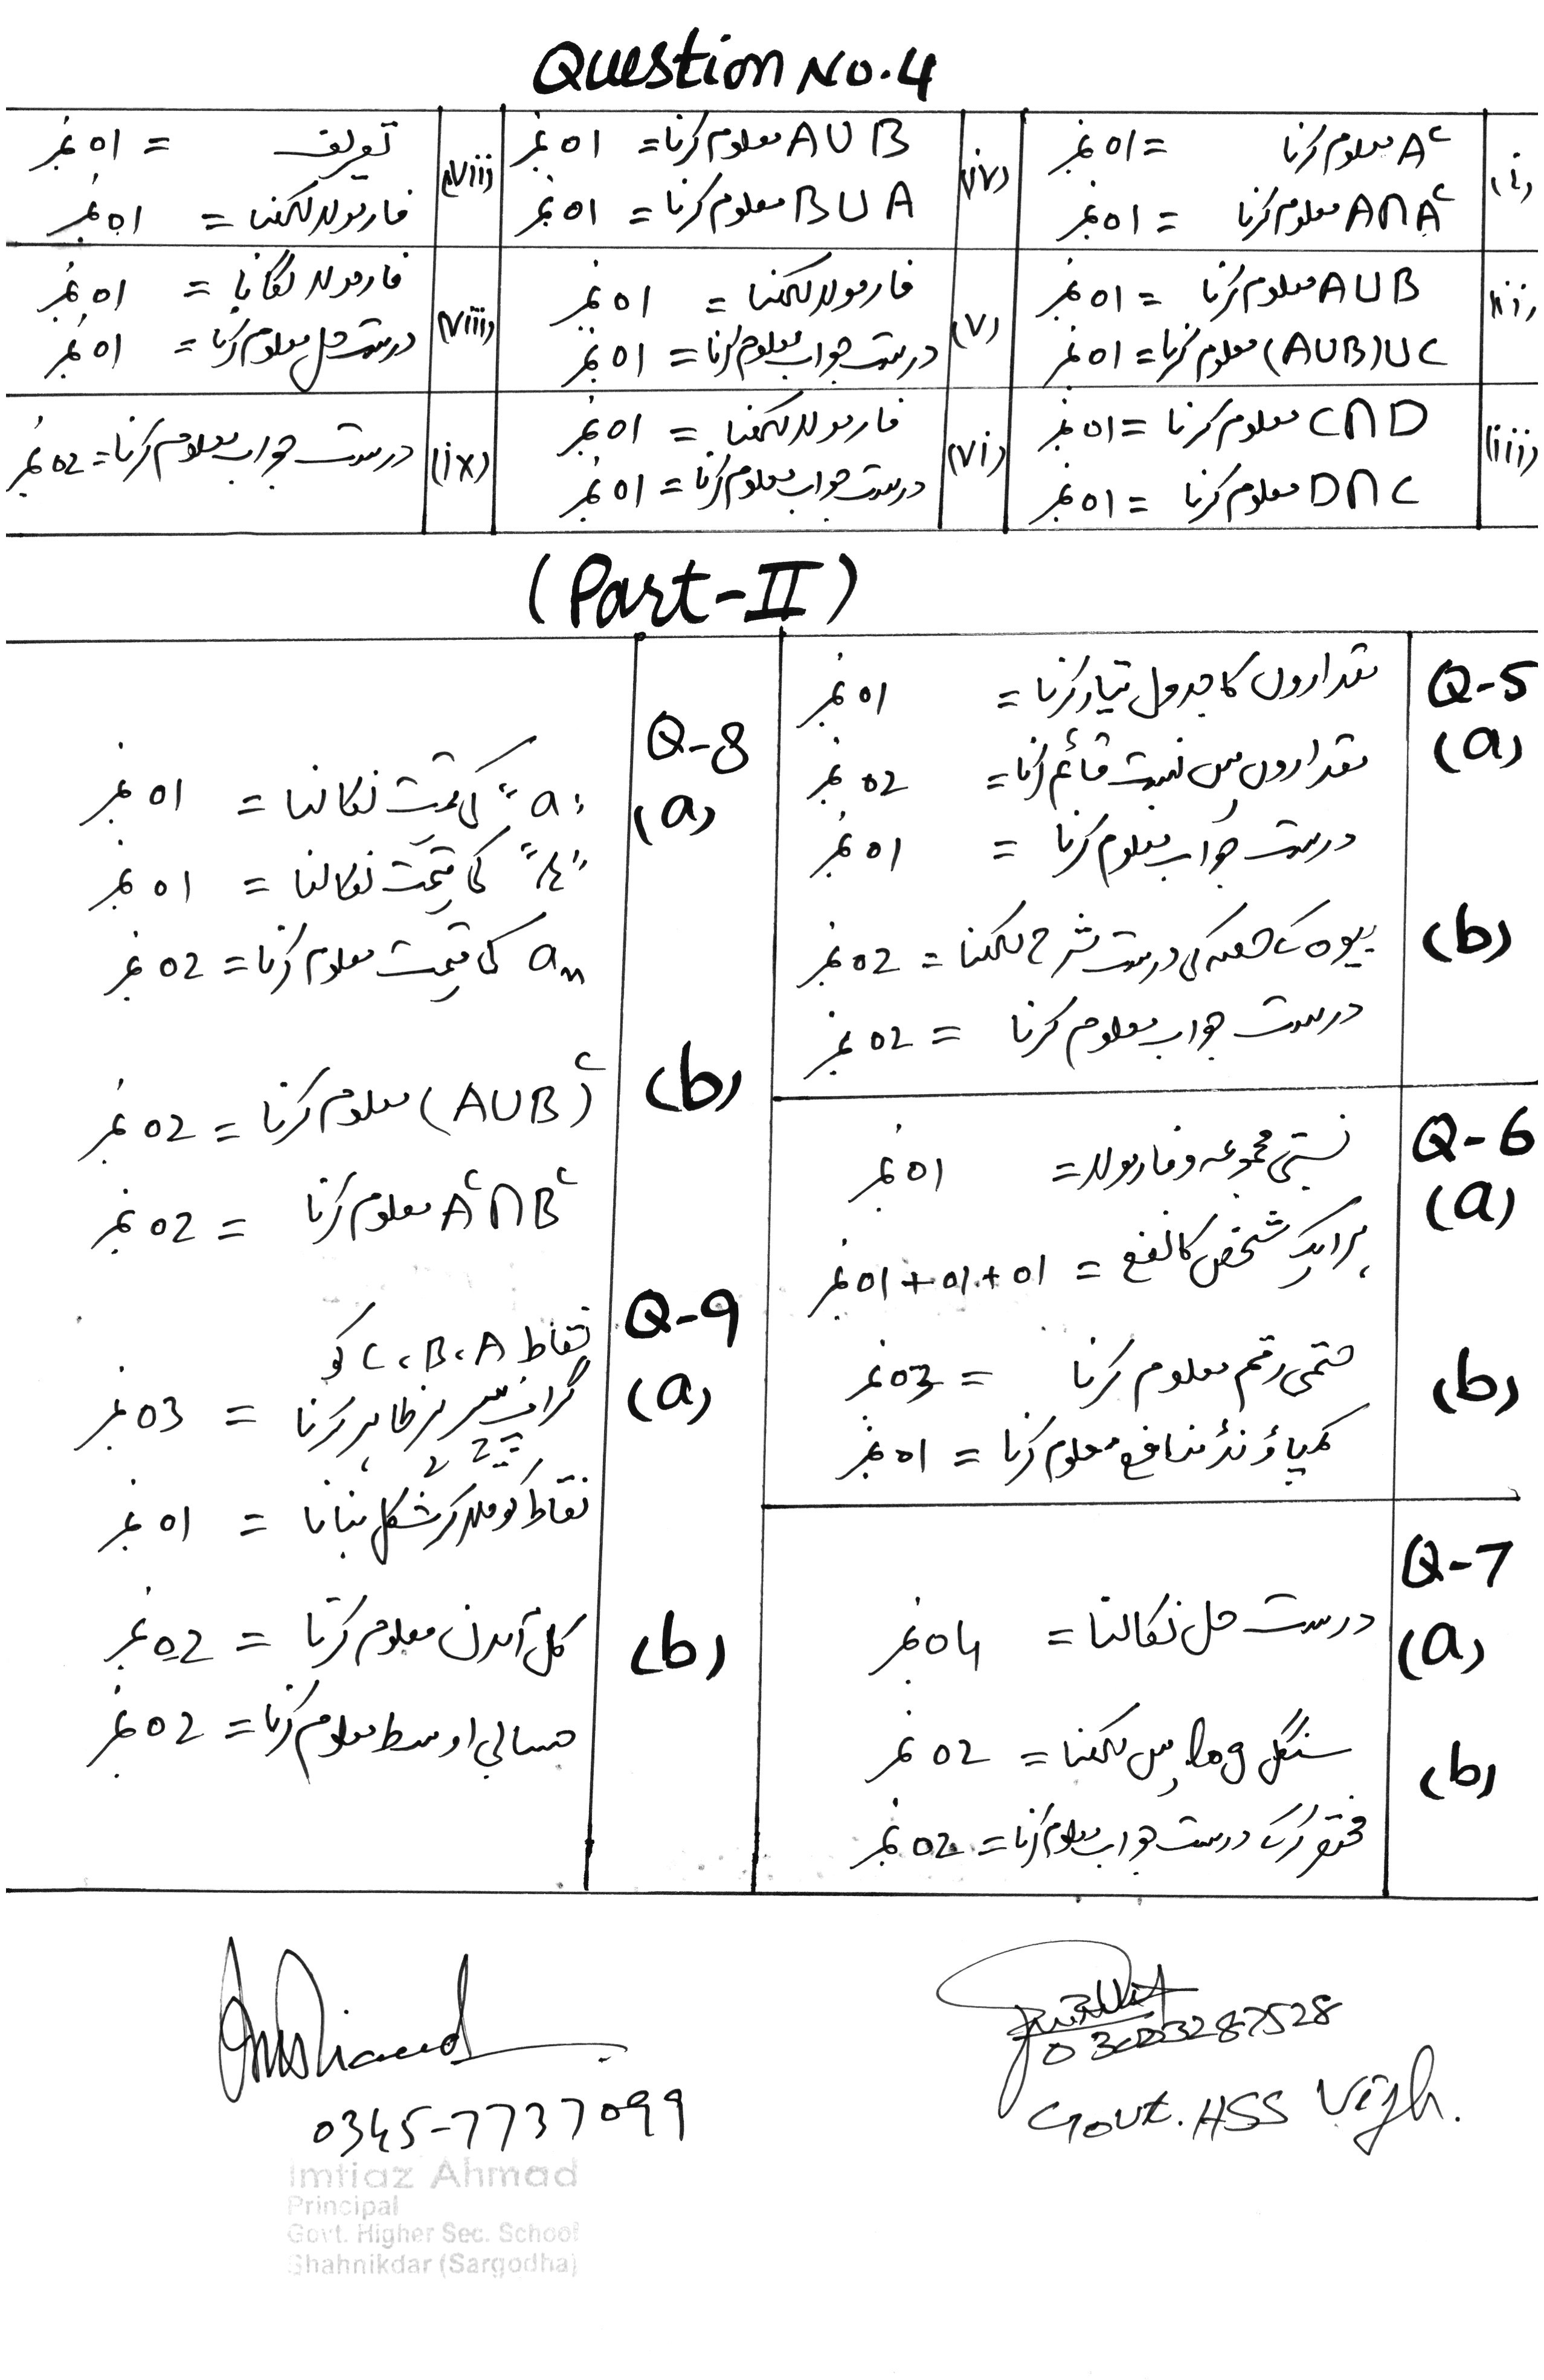 Question No. 4
(i) A^c معلوم کرنا = 01 نمبر
A∩A^c معلوم کرنا = 01 نمبر
(ii) A∪B معلوم کرنا = 01 نمبر
(A∪B)∪C معلوم کرنا = 01 نمبر
(iii) C∩D معلوم کرنا = 01 نمبر
D∩C معلوم کرنا = 01 نمبر
(iv) A∪B معلوم کرنا = 01 نمبر
B∪A معلوم کرنا = 01 نمبر
(v) فارمولہ لکھنا = 01 نمبر
درست جواب معلوم کرنا = 01 نمبر
(vi) فارمولہ لکھنا = 01 نمبر
درست جواب معلوم کرنا = 01 نمبر
(vii) تعریف = 01 نمبر
فارمولہ لکھنا = 01 نمبر
(viii) فارمولہ لگانا = 01 نمبر
درست حل معلوم کرنا = 01 نمبر
(ix) درست جواب معلوم کرنا = 02 نمبر
(Part-II)
Q-5
(a) مقداروں کا جدول تیار کرنا = 01 نمبر
مقداروں میں نسبت قائم کرنا = 02 نمبر
درست جواب معلوم کرنا = 01 نمبر
(b) بیوہ کے حصہ کی درست شرح لکھنا = 02 نمبر
درست جواب معلوم کرنا = 02 نمبر
Q-6
(a) نسبتی مجموعہ و فارمولہ = 01 نمبر
ہر ایک شخص کا نفع = 01+01+01 نمبر
(b) حتمی رقم معلوم کرنا = 03 نمبر
کمپاؤنڈ منافع معلوم کرنا = 01 نمبر
Q-7
(a) درست حل نکالنا = 04 نمبر
(b) سنگل log میں لکھنا = 02 نمبر
مختصر کرکے درست جواب معلوم کرنا = 02 نمبر
Q-8
(a) "a₁" کی قیمت نکالنا = 01 نمبر
"r" کی قیمت نکالنا = 01 نمبر
aₙ کی قیمت معلوم کرنا = 02 نمبر
(b) (A∪B)^c معلوم کرنا = 02 نمبر
A^c∩B^c معلوم کرنا = 02 نمبر
Q-9
(a) نقاط C، B، A کو
گراف پیپر پر ظاہر کرنا = 03 نمبر
نقاط کو ملا کر شکل بنانا = 01 نمبر
(b) کل آمدن معلوم کرنا = 02 نمبر
حسابی اوسط معلوم کرنا = 02 نمبر
0345-7737099
Imtiaz Ahmad
Principal
Govt. Higher Sec. School
Shahnikdar (Sargodha)
Govt. HSS Vijh.